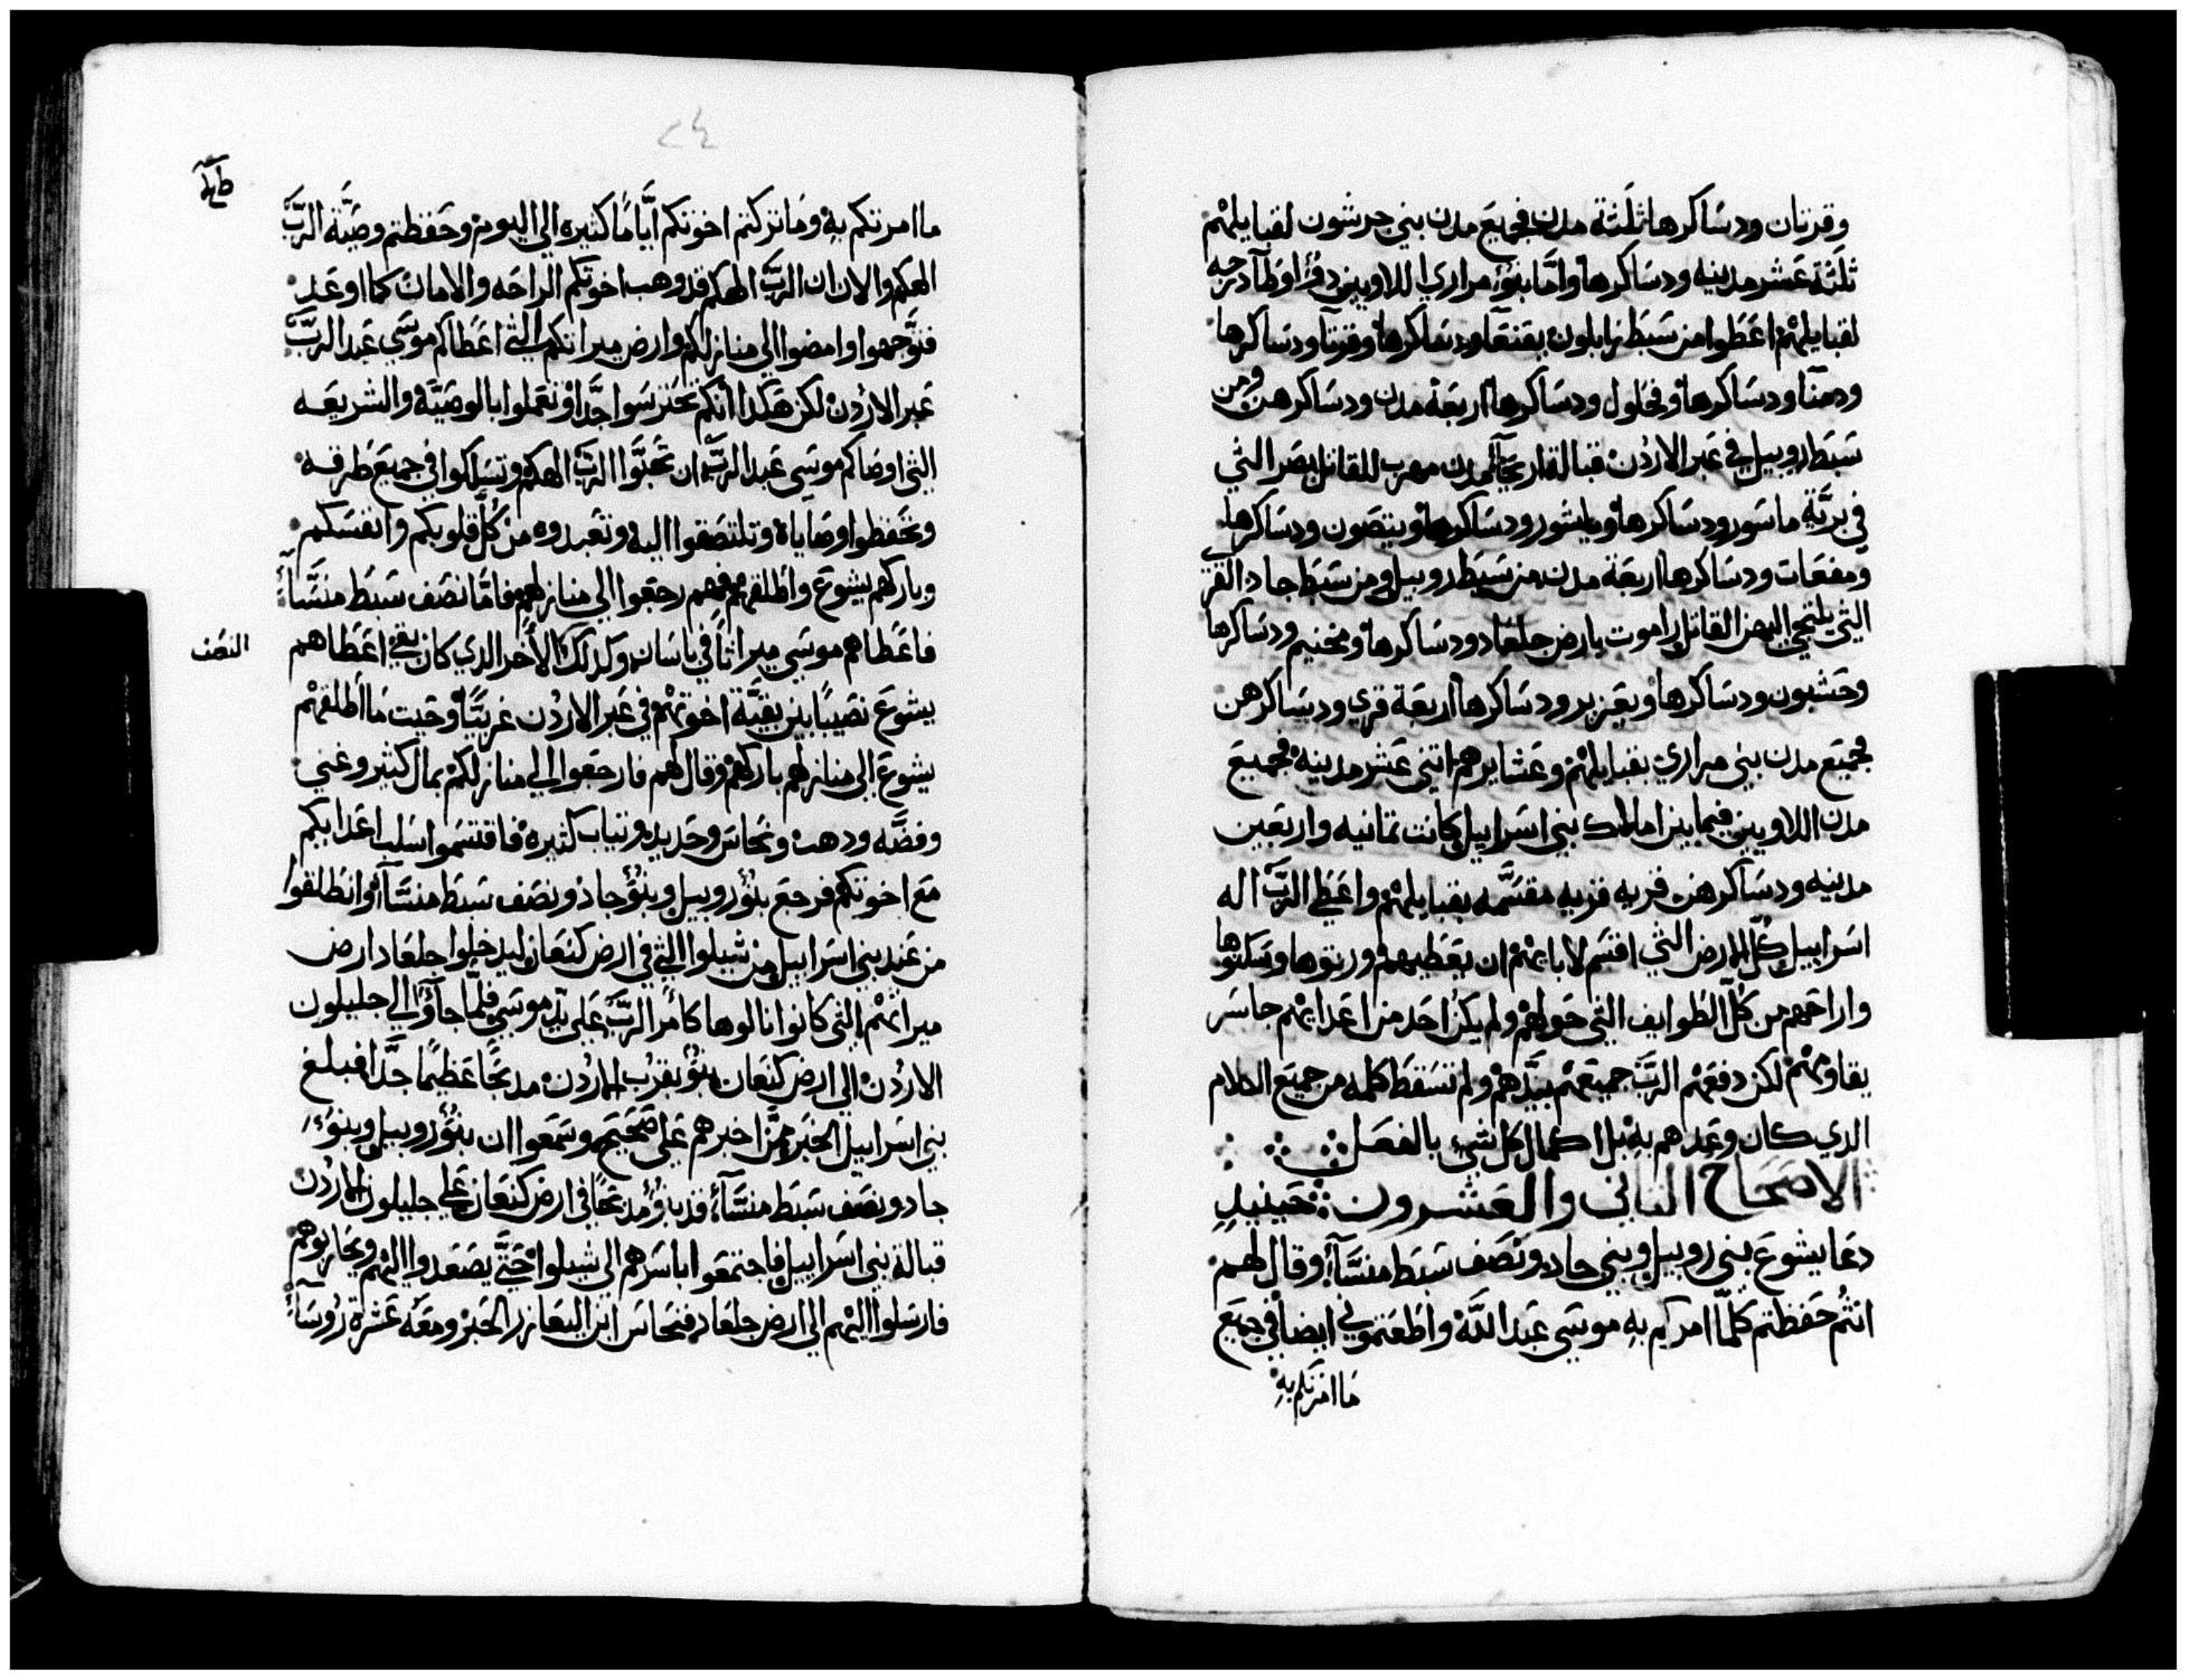 وقرتان ودساكرها ثلثة مدن فجميع مدن بني جرشون لقبايلهم
ثلثة عشر مدينه ودساكرها واما بنو مراري اللاويين
لقبايلهم اعطوا من سبط زابلون يقنعا ودساكرها وقرتا ودساكرها
ودمنا ودساكرها ونحلول ودساكرها اربعة مدن ودساكرهن ومن
سبط روبيل في عبر الاردن قبالة اريحا مدن مهرب للقاتل بصر التي
في برية ماسور ودساكرها ويايشور ودساكرها ويتصون ودساكرها
ومفعات ودساكرها اربعة مدن من سبط روبيل ومن سبط جاد القرى
التي يلتجي اليهن القاتل راموت بارض جلعاد ودساكرها ومخنيم ودساكرها
وحشبون ودساكرها ويعزير ودساكرها اربعة قرى ودساكرهن
فجميع مدن بني مراري بقبايلهم وعشايرهم اثني عشر مدينه فجميع
مدن اللاويين فيما بين املاك بني اسراييل كانت ثمانيه واربعين
مدينه ودساكرهن قريه قريه مقسمه بقبايلهم واعطي الرب اله
اسراييل كل الارض التي اقسم لابايهم ان يعطيهم ورتوها وسكنوها
واراحهم من كل الطوايف التي حولهم ولم يكن احد من اعدايهم جاسر
يقاومهم لكن دفعهم الرب جميعهم بيدهم ولم تسقط كلمه من جميع الكلام
الدي كان وعدهم به بل اكمال كل شي بالفعل
الاصحاح الثاني والعشرون حينيد
دعا يشوع بني روبيل وبني جاد ونصف سبط منسا وقال لهم
انتم حفظتم كلما امركم به موسي عبد الله واطعتموني ايضا في جميع
ما امرتكم به
٢٤
ما امرتكم به وما تركتم اخوتكم اياما كثيره الي اليوم وحفظتم وصية الرب
الهكم والان ان الرب الهكم قد وهب اخوتكم الراحه والامان كما اوعد
فتوجهوا وامضوا الي منازلكم وارض ميراتكم التي اعطاكم موسي عبد الرب
عبر الاردن لكن هكدا انكم تحترسوا جدا وتعملوا بالوصية والشريعه
التي اوصاكم موسي عبد الرب ان تحبوا الرب الهكم وتسلكوا في جميع طرقه
وتحفظوا وصاياه وتلتصقوا اليه وتعبدوه من كل قلوبكم وانفسكم
وباركهم يشوع واطلقهم فهم رجعوا الي منازلهم فاما نصف سبط منسا
فاعطاهم موسي ميراثا في باسان وكدلك الاخر الدي كان بقي اعطاهم
النصف
يشوع نصيبا بين بقية اخوتهم في عبر الاردن غربيا وحيت ما اطلقهم
يشوع الي منازلهم باركهم وقال لهم فارجعوا الي منازلكم بمال كثير وغني
وفضه ودهب ونحاس وحديد وتياب كثيره فاقتسموا سلب اعدايكم
مع اخوتكم فرجع بنو روبيل وبنو جاد ونصف سبط منسا وانطلقوا
من عند بني اسراييل من شيلوا التي في ارض كنعان ليدخلوا جلعاد ارض
ميراثهم التي كانوا نالوها كامر الرب علي يد موسي فلما جاؤا الي جليلون
الاردن الي ارض كنعان بنوا بقرب الاردن مدبحا عظيما جدا فبلغ
بني اسراييل الخبر ممن اخبرهم علي صحيح وسمعوا ان بنو روبيل وبنو
جاد ونصف سبط منسا قد بنوا مدبحا في ارض كنعان علي جليلون الاردن
قبالة بني اسراييل فاجتمعوا باسرهم الي شيلوا حتي يصعدوا اليهم ويحاربوهم
فارسلوا اليهم الي ارض جلعاد فنحاس ابن اليعازر الحبر ومعه عشرة روسا